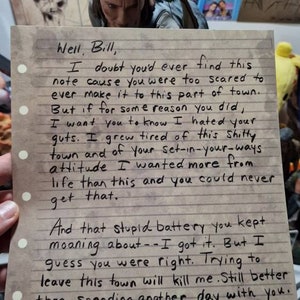 Well, Bill,
I doubt you'd ever find this
note cause you were too scared to
ever make it to this part of town.
But if for some reason you did,
I want you to know I hated your
guts. I grew tired of this shitty
town and of your set-in-your-ways
attitude. I wanted more from
life than this and you could never
get that.
And that stupid battery you kept
moaning about -- I got it. But I
guess you were right. Trying to
leave this town will kill me. Still better
than spending another day with you.